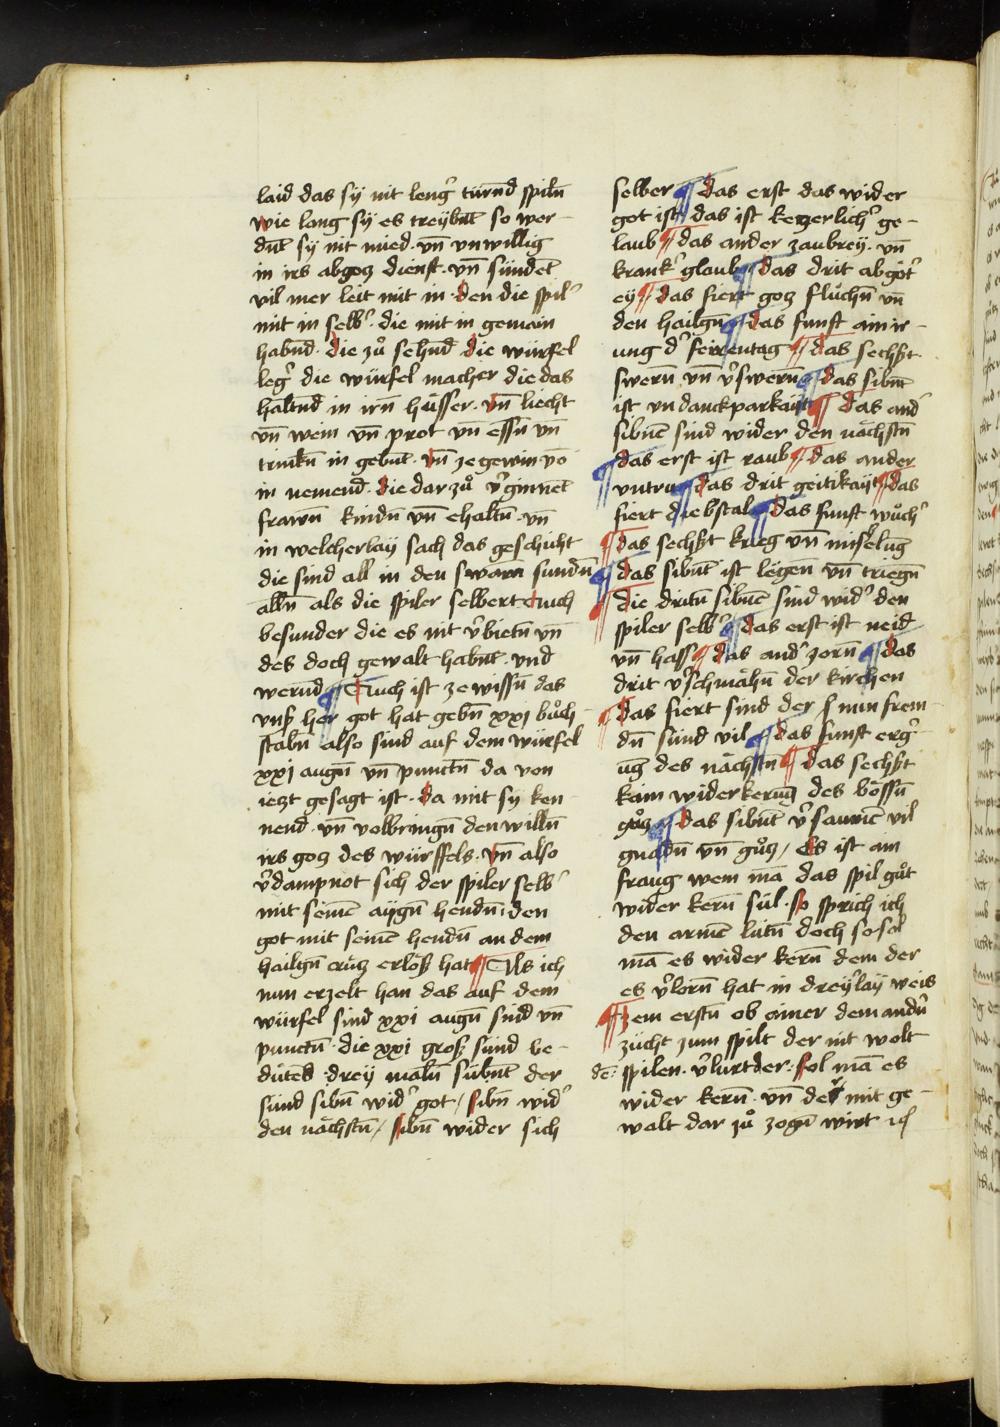 laid das sy nit leng᷑ türnd spiln̄
wie lang sy es treybnt so wer-
dnt sy nit mied · vn̄ vnwillig
in irs abgotz dienst · vn̄ sündet
vil mer leit mit in · den die spil᷑
mit in selb᷑ · die mit in gemain
habnd · die zů sehnd die würfel
leg᷑ die würfel macher die das
haltnd in irn̄ hüsser · vn̄ liecht
vn̄ wem vn̄ prot vn̄ essn̄ vn̄
trinkn̄ in gebnt · vn̄ ze gewin vō
in nemend · die dar zů v᷑ginnet
frawn̄ kindn̄ vn̄ ehaltn̄ · vn̄
in welcherlay sach das geschuht
die sind all in den swarn̄ sundn̄
alln̄ als die spiler selbert Auch
besunder die es nit v᷑bietn̄ vn̄
des doch gewalt habnt · vnd
wernd ¶ Auch ist ze wissn̄ das
vnß her got hat gebn̄ xxj bůch-
stabn̄ also sind auf dem würfel
xxj augn̄ vn̄ punctn̄ da von
ietzt gesagt ist · da mit sy ken-
nend · vn̄ volbringn̄ den willn̄
irs gotz des würffels · vn̄ also
v᷑dampnot sich der spiler selb᷑
mit seinē aygn̄ hendn̄ · den
got mit seinē hendn̄ an dem
hailgn̄ crütz erlöß hat ¶ Als ich
nun erzelt han das auf dem
würfel sind xxi augn̄ sind vn̄
punctn̄ · die xxi groß sünd be-
düted · drey maln̄ sübnt der
sünd sibn̄ wid᷑ got / sibn̄ wid᷑
den nächstn̄ / sibn̄ wider sich
selber ¶ das erst das wider
got ist · das ist ketzerlich᷑ ge-
laub ¶ das ander zaubrey · vn̄
krank᷑ glaub ¶ das drit abgöt᷑
ey ¶ das fiert gotz flůchn̄ vn̄
den hailgn̄ ¶ das funft ainir-
ung d᷑ feirrentag ¶ das sechßt
swern̄ vn̄ v᷑swern̄ ¶ das sibnt
ist vndanckparkäit ¶ das and᷑
sibnē sind wider den nächstn̄
¶ das erst ist raub ¶ das ander
vntru ¶ das drit geitikayt ¶ das
fiert diebstal ¶ das funft wůch᷑
¶ das sechßt krieg vn̄ mishelūg
¶ das sibnt ist legen̄ vn̄ triegn̄
¶ die dritn̄ sibnē sind wid᷑ den
spiler selb᷑ ¶ das erst ist neid
vn̄ hass ¶ das and᷑ zorn̄ ¶ das
drit v᷑schmähn̄ der kirchen
¶ das fiert sind der s nun frem-
dn̄ sünd vil ¶ das funft erg᷑-
ūg des nächstn̄ ¶ das sechßt
kain widerkerung des bössn̄
gůtz ¶ das sibnt v᷑saumē vil
gnadn̄ vn̄ gůtz / Es ist ain
fraug wem mā das spil gůt
wider kern̄ sül · so sprich ich
den armē lütn̄ doch so sol
mā es wider kern̄ dem der
es v᷑lorn̄ hat in dreyrlay weis
¶ zem erstn̄ ob ainer dem andn᷑
zücht zum spilt der nit wolt
dē: spilen · v᷑lurt der · sol mā es
wider kern̄ · vn̄ der mit ge-
walt dar zů zogn̄ wirt